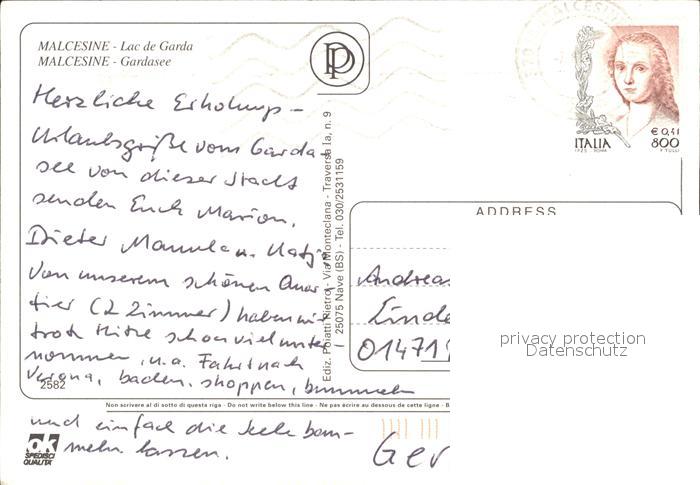 MALCESINE - Lac de Garda
MALCESINE - Gardasee
Herzliche Erholungs-
Urlaubsgrüße vom Garda-
see von dieser Stadt
senden Euch Marion,
Dieter Manula u. Katja
Von unserem schönen Quar-
tier (2 Zimmer) haben wir
trotz Hitze schon viel unter-
nommen, u.a. Fahrt nach
Verona, baden, shoppen, bummeln
2582
und einfach die Seele bau-
meln lassen.
ok
SPEDISCI
QUALITA'
Ediz. Poiatti Pietro - Via Monteclana - Traversa Ia, n. 9
I 25075 Nave (BS) - Tel. 030/2531159
Non scrivere al di sotto di questa riga - Do not write below this line - Ne pas écrire au dessous de cette ligne - B
MALCESINE
€ 0,41
ITALIA 800
1723 ROMA
F. TULLI
ADDRESS
Andreas
Linde
01471
Ger
privacy protection
Datenschutz